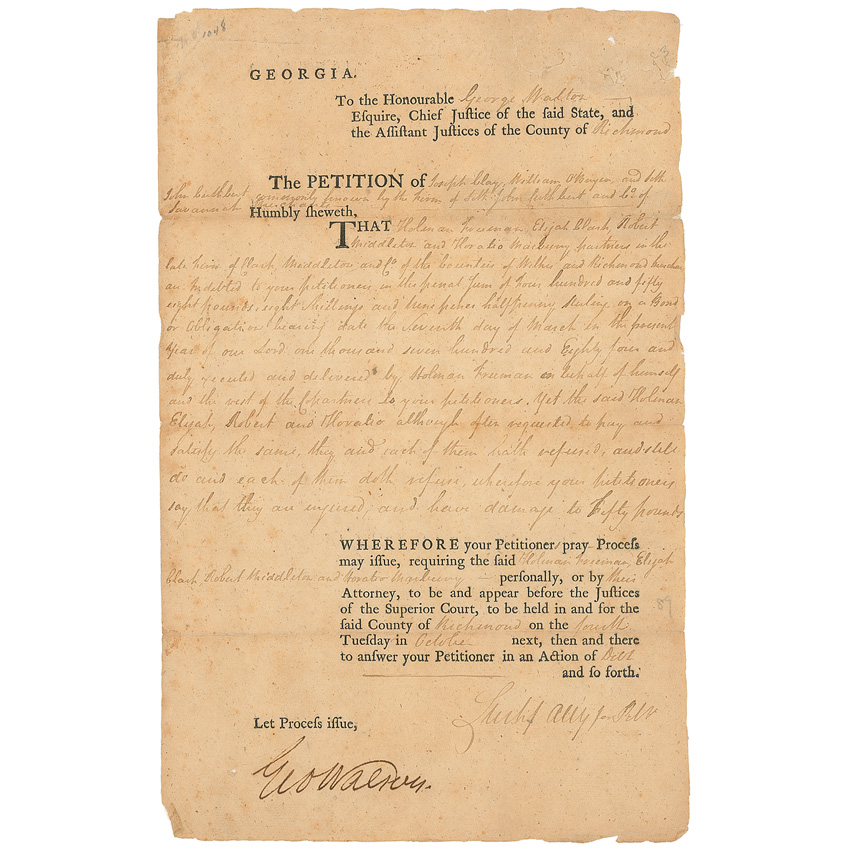 1048
GEORGIA.
To the Honourable George Walton
Eſquire, Chief Juſtice of the ſaid State, and
the Aſſiſtant Juſtices of the County of Richmond
The PETITION of Joseph Clay, William O'Bryen and Seth
John Cuthbert, commonly known by the Firm of Seth John Cuthbert and Co. of
Savannah
Humbly ſheweth,
THAT Holman Freeman, Elijah Clark, Robert
Middleton and Horatio Marbury partners in the
late Firm of Clark, Middleton and Co. of the Counties of Wilkes and Richmond
are Indebted to your petitioners in the penal Sum of Four hundred and fifty
eight pounds, eight Shillings and nine pence halfpenny Sterling on a Bond
or Obligation bearing date the Seventh day of March in the present
Year of our Lord one thousand seven hundred and Eighty four and
duly executed and delivered by Holman Freeman on behalf of himself
and the rest of the Copartners to your petitioners. Yet the said Holman
Elijah, Robert and Horatio although often requested to pay and
satisfy the same, they and each of them hath refused, and still
do and each of them doth refuse, wherefore your petitioners
say that they are injured, and have damage to Fifty pounds
WHEREFORE your Petitioners pray Proceſs
may iſſue, requiring the ſaid Holman Freeman, Elijah
Clark, Robert Middleton and Horatio Marbury — perſonally, or by their
Attorney, to be and appear before the Juſtices
of the Superior Court, to be held in and for the
ſaid County of Richmond on the fourth
Tueſday in October next, then and there
to anſwer your Petitioner in an Action of Debt
and ſo forth.
89
Let Proceſs iſſue,
Geo Walton.